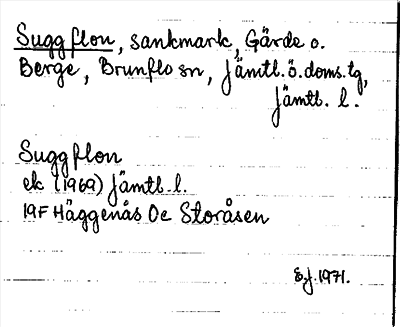 Suggflon, sankmark, Gärde o.
Berge, Brunflo sn, Jämtl. ö. doms. tg,
Jämtl. l.
Suggflon
ek (1969) Jämtl. l.
19F Häggenås 0e Storåsen
S.J. 1971.